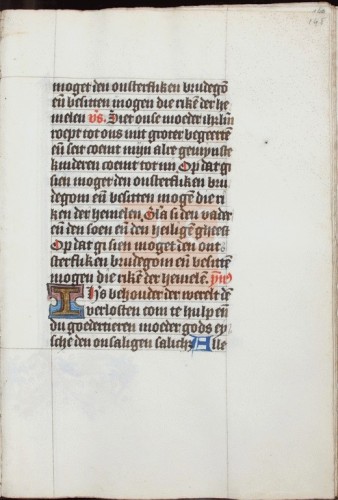 148
moget den onsterfliken brudegō
eñ besitten mogen die rikē der he
melen v̄s. Siet onse moeder ihrl̄m
roept tot ons mit groter begeerten
eñ seit coemt mijn alre gemynste
kinderen coemt tot mi Op dat gi
sien moget den onsterfliken bru
degom eñ besitten mogē die ri
ken der hemelen. Gl̄a si den vader
eñ den soen eñ den heiligē gheest
Op dat gi sien moget den onst
sterfliken brudegom eñ besittē
mogen die rikē der hemelē.
Ih̄s behouder der werelt dē
verlosten com te hulp eñ
du goedertieren moeder gods ey
sche den onsaligen salich Alle